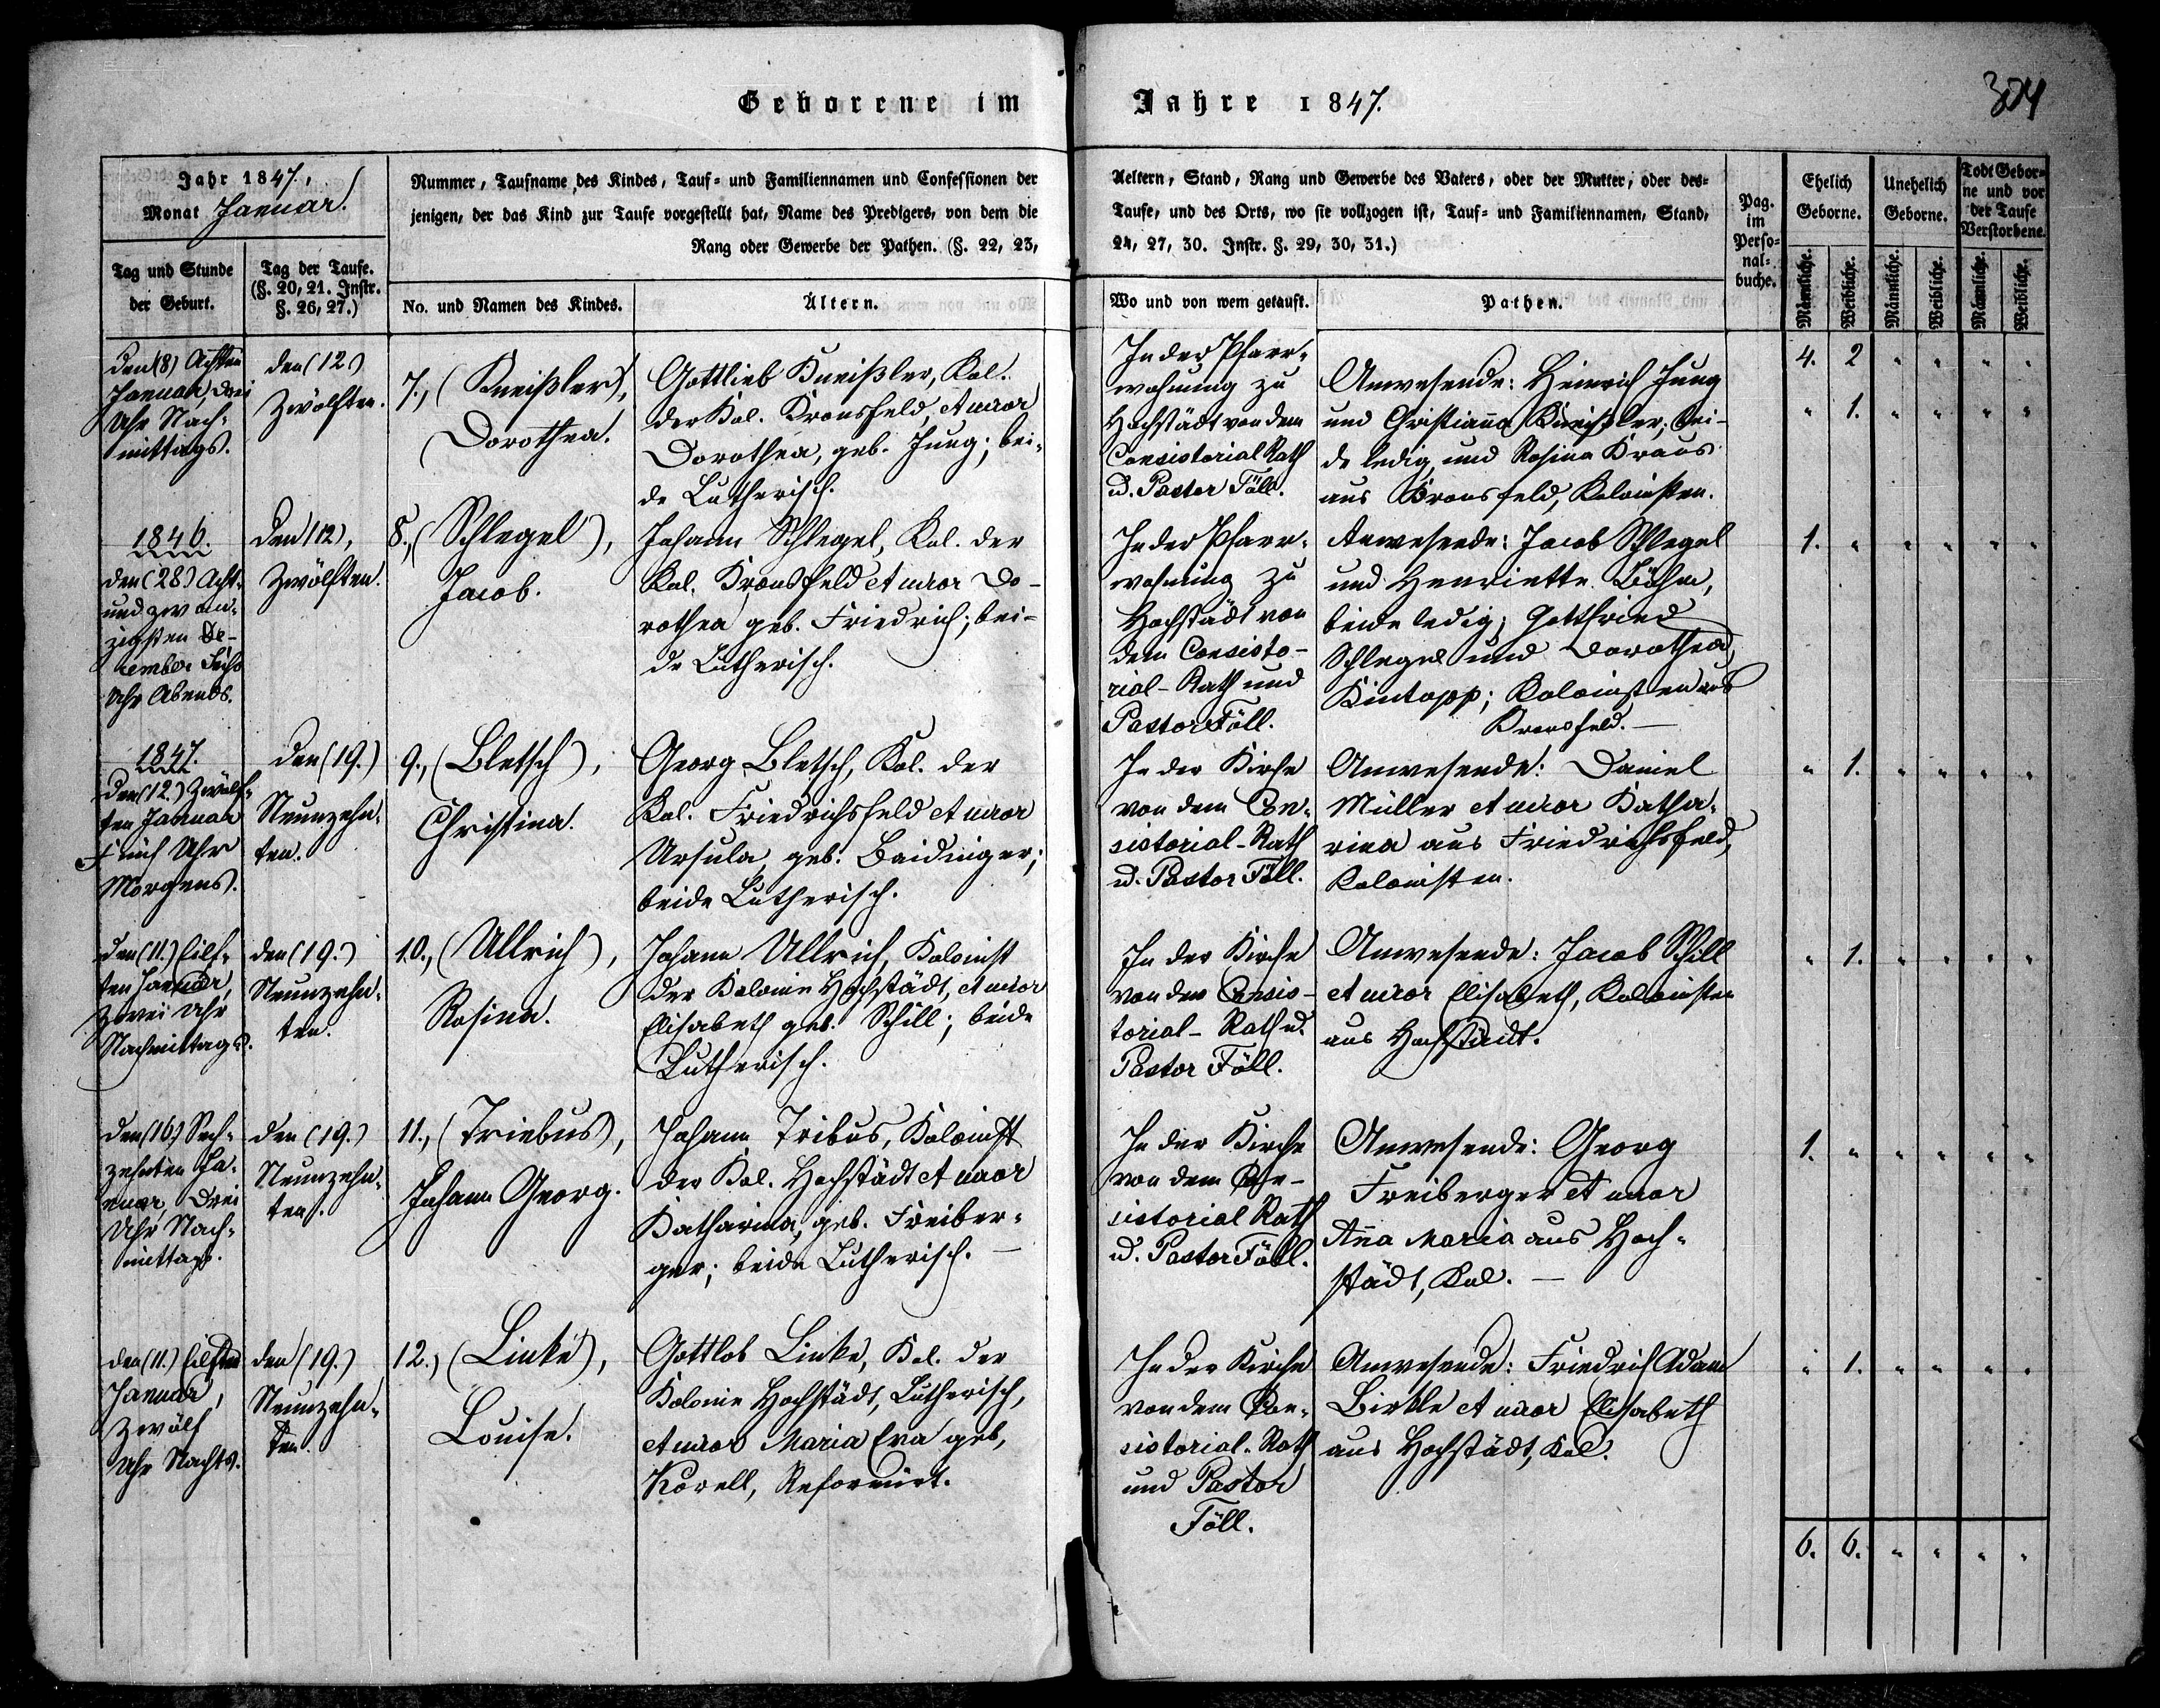 Geborene im Jahre 1847.
304
Jahr 1847.,
Monat Januar.
Nummer, Taufname des Kindes, Tauf- und Familiennamen und Confessionen der Aeltern, Stand, Rang und Gewerbe des Vaters, oder der Mutter, oder des-
jenigen, der das Kind zur Taufe vorgestellt hat, Name des Predigers, von dem die Taufe, und des Orts, wo sie vollzogen ist, Tauf- und Familiennamen, Stand,
Rang oder Gewerbe der Pathen. (§. 22, 23, 24, 27, 30. Instr. §. 29, 30, 31.)
Pag.
im
Perso-
nal-
buche.
Ehelich
Geborne.
Unehelich
Geborne.
Todt Gebor-
ne und vor
der Taufe
Verstorbene.
Tag und Stunde
der Geburt.
Tag der Taufe.
(§. 20, 21. Instr.
§. 26, 27.)
No. und Namen des Kindes.
Ältern.
Wo und von wem getauft.
Pathen.
Männliche.
Weibliche.
Männliche.
Weibliche.
Männliche.
Weibliche.
4. 2 " " " "
den (8) Achten
Januar, drei
Uhr Nach-
mittags.
den (12.)
Zwölften.
7., (Kneißler),
Dorothea.
Gottlieb Kneißler, Kol.
der Kol. Kronsfeld, et uxor
Dorothea, geb. Jung; bei-
de Lutherisch.
In der Pfarr-
wohnung zu
Hochstädt von dem
Consistorial Rath
u. Pastor Föll.
Anwesende: Heinrich Jung
und Christiana Kneißler; bei-
de ledig, und Rosina Kraus
aus Kronsfeld, Kolonisten.
" 1. " " " "
1846.
den (28.) Acht-
und zwan-
zigsten De-
cember Sechs
Uhr Abends.
den (12),
Zwölften.
8., (Schlegel),
Jacob.
Johann Schlegel, Kol. der
Kol. Kronsfeld et uxor Do-
rothea geb. Friedrich; bei-
de Lutherisch.
In der Pfarr-
wohnung zu
Hochstädt von
dem Consisto-
rial-Rath und
Pastor Föll.
Anwesende: Jacob Schlegel
und Henriette
beide ledig; Gottfried
Schlegel und Dorothea
Kintopp; Kolonisten aus
Kronsfeld. —
1. " " " " "
1847.
den (12.) Zwölf-
ten Januar
Fünf Uhr
Morgens.
den (19.)
Neunzehn-
ten.
9., (Bletsch),
Christina.
Georg Bletsch, Kol. der
Kol. Friedrichsfeld et uxor
Ursula, geb. Baidinger;
beide Lutherisch.
In der Kirche
von dem Con-
sistorial-Rath
u. Pastor Föll.
Anwesende: Daniel
Müller et uxor Katha-
rina aus Friedrichsfeld,
Kolonisten.
" 1. " " " "
den (11.) Eilf-
ten Januar,
Zwei Uhr
Nachmittags.
den (19.)
Neunzehn-
ten.
10., (Ullrich),
Rosina.
Johann Ullrich, Kolonist
der Kolonie Hochstädt, et uxor
Elisabeth geb. Schill; beide
Lutherisch.
In der Kirche
von dem Consis-
torial-Rath u.
Pastor Föll.
Anwesende: Jacob Schill
et uxor Elisabeth, Kolonisten
aus Hochstädt.
" 1. " " " "
den (16.) Sech-
zehnten Ja-
nuar, Drei
Uhr Nach-
mittags.
den (19.)
Neunzehn-
ten.
11., (Triebus),
Johann Georg.
Johann Tribus, Kolonist
der Kol. Hochstädt et uxor
Katharina, geb. Freiber-
ger; beide Lutherisch. —
In der Kirche
von dem Con-
sistorial Rath
u. Pastor Föll.
Anwesende: Georg
Freiberger et uxor
Aña Maria aus Hoch-
städt, Kol. —
1. " " " " "
den (11.) Eilften
Januar,
Zwölf
Uhr Nachts.
den (19.)
Neunzehn-
ten.
12., (Linke),
Louise.
Gottlob Linke, Kol. der
Kolonie Hochstädt, Lutherisch,
et uxor Maria Eva geb.
Korell, Reformirt.
In der Kirche
von dem Con-
sistorial-Rath
und Pastor
Föll.
Anwesende: Friedrich Adam
Birkle et uxor Elisabeth
aus Hochstädt, Kol.
" 1. " " " "
6. 6. " " " "